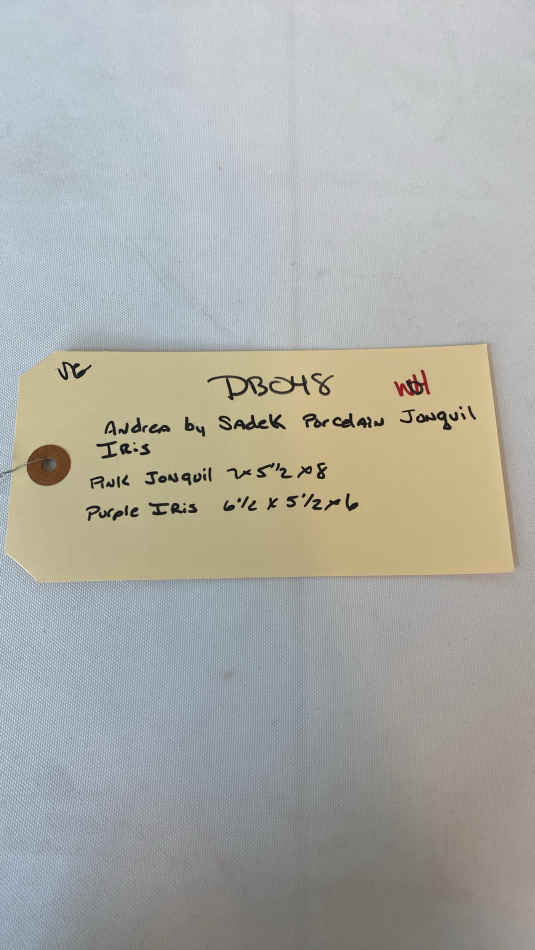 DB048
Andrea by Sadek Porcelain Jonquil
Iris
Pink Jonquil 7x 5 1/2 x 8
Purple Iris 6 1/2 x 5 1/2 x 6